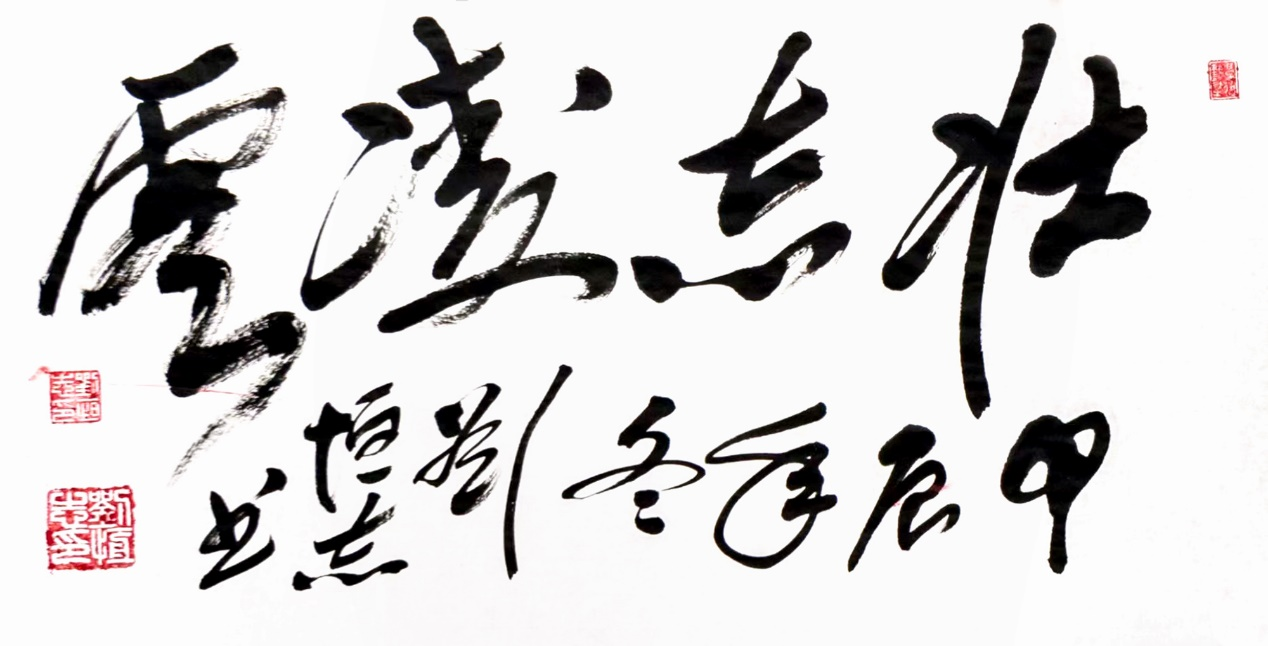 壮志凌雲
甲辰年冬劉恒志书